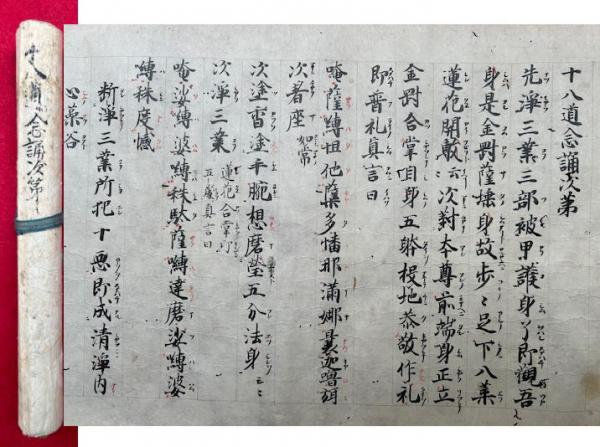 十八道念誦次第
十八道念誦次第
先淨三業三部被甲護身了即觀吾
身是金剛薩埵身故步々足下八葉
蓮花開敷云々次對本尊前端身正立
金剛合掌 身五躰投地恭敬作礼
即普礼真言曰
唵薩縛怛他蘖多幡那滿娜曩迦嚕弭
次着座 如常
次塗香塗手腕想磨瑩五分法身 云々
次淨三業 蓮花合掌
五處真言曰
唵娑縛婆嚩秫馱薩嚩達磨娑縛婆
嚩秫度憾
断淨三業所犯十惡即成清淨内
心